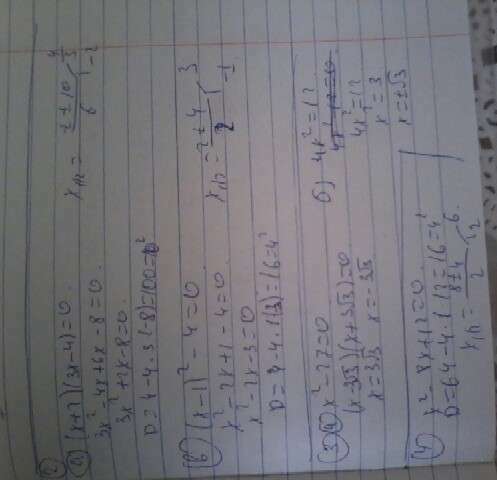 ②
а) (x+2)(3x-4)=0.
3x²-4x+6x-8=0.
3x²+2x-8=0.
D=4-4·3(-8)=100=10²
x₁,₂ = (-2±10)/6 4/3 -2
б) (x-1)²-4=0
x²-2x+1-4=0.
x²-2x-3=0
D=4-4·1(3)=16=4²
x₁,₂ = (2±4)/2 3 -1
③ а) x²-27=0
(x-3√3)(x+3√3)=0
x=3√3 x=-3√3
б) 4x²=12
4x²=12
x²=3
x=±√3
④ x²-8x+12=0.
D=64-4·1·12=16=4²
x₁,₂ = (8±4)/2 6. 2